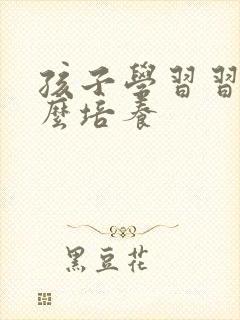 孩子學習習
麼培養
黑豆花